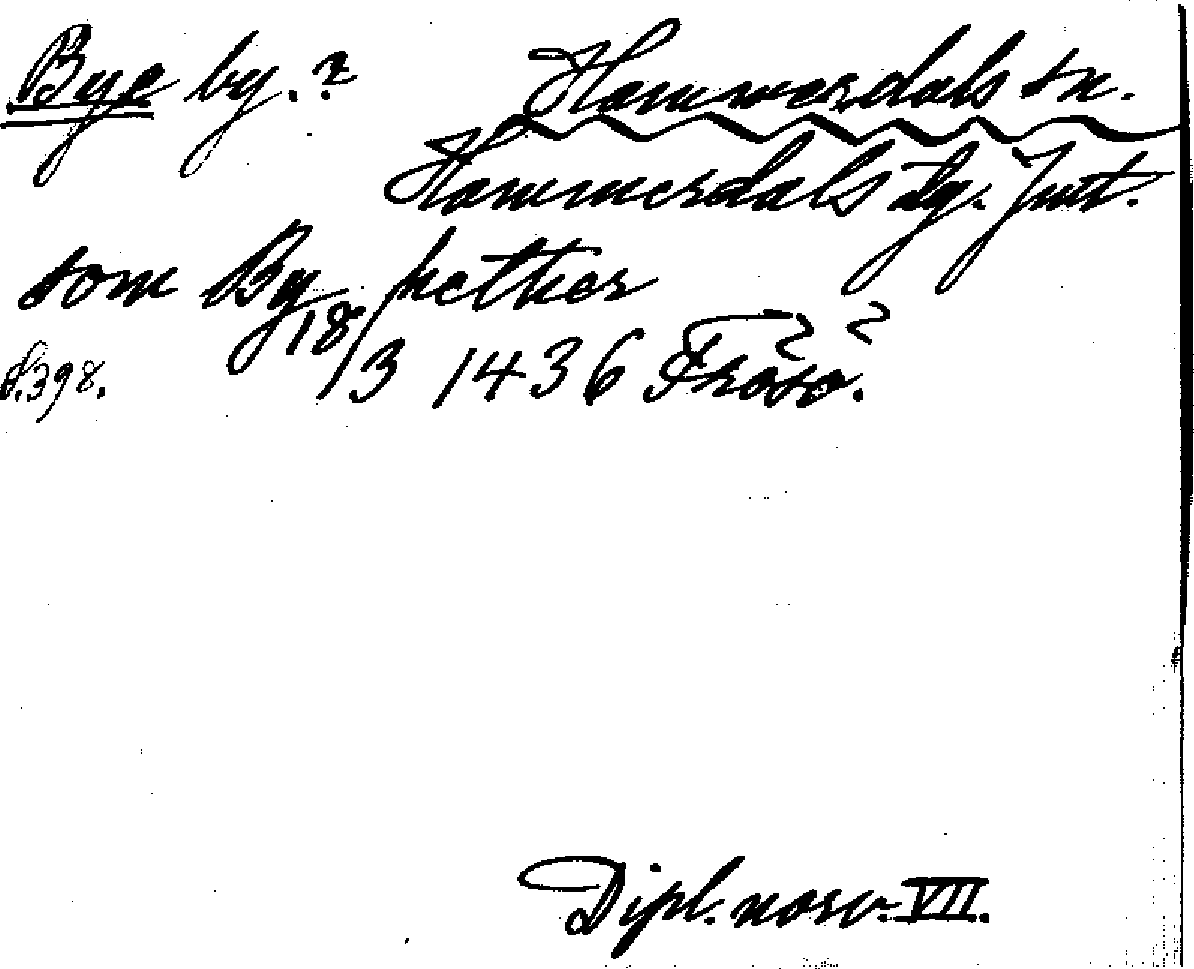 Bye by.? Hammerdals sn.
Hammerdals tg. Jmt.
som By hether
S. 398. 18/3 1436 Frösö. ?
Dipl. norv. VII.